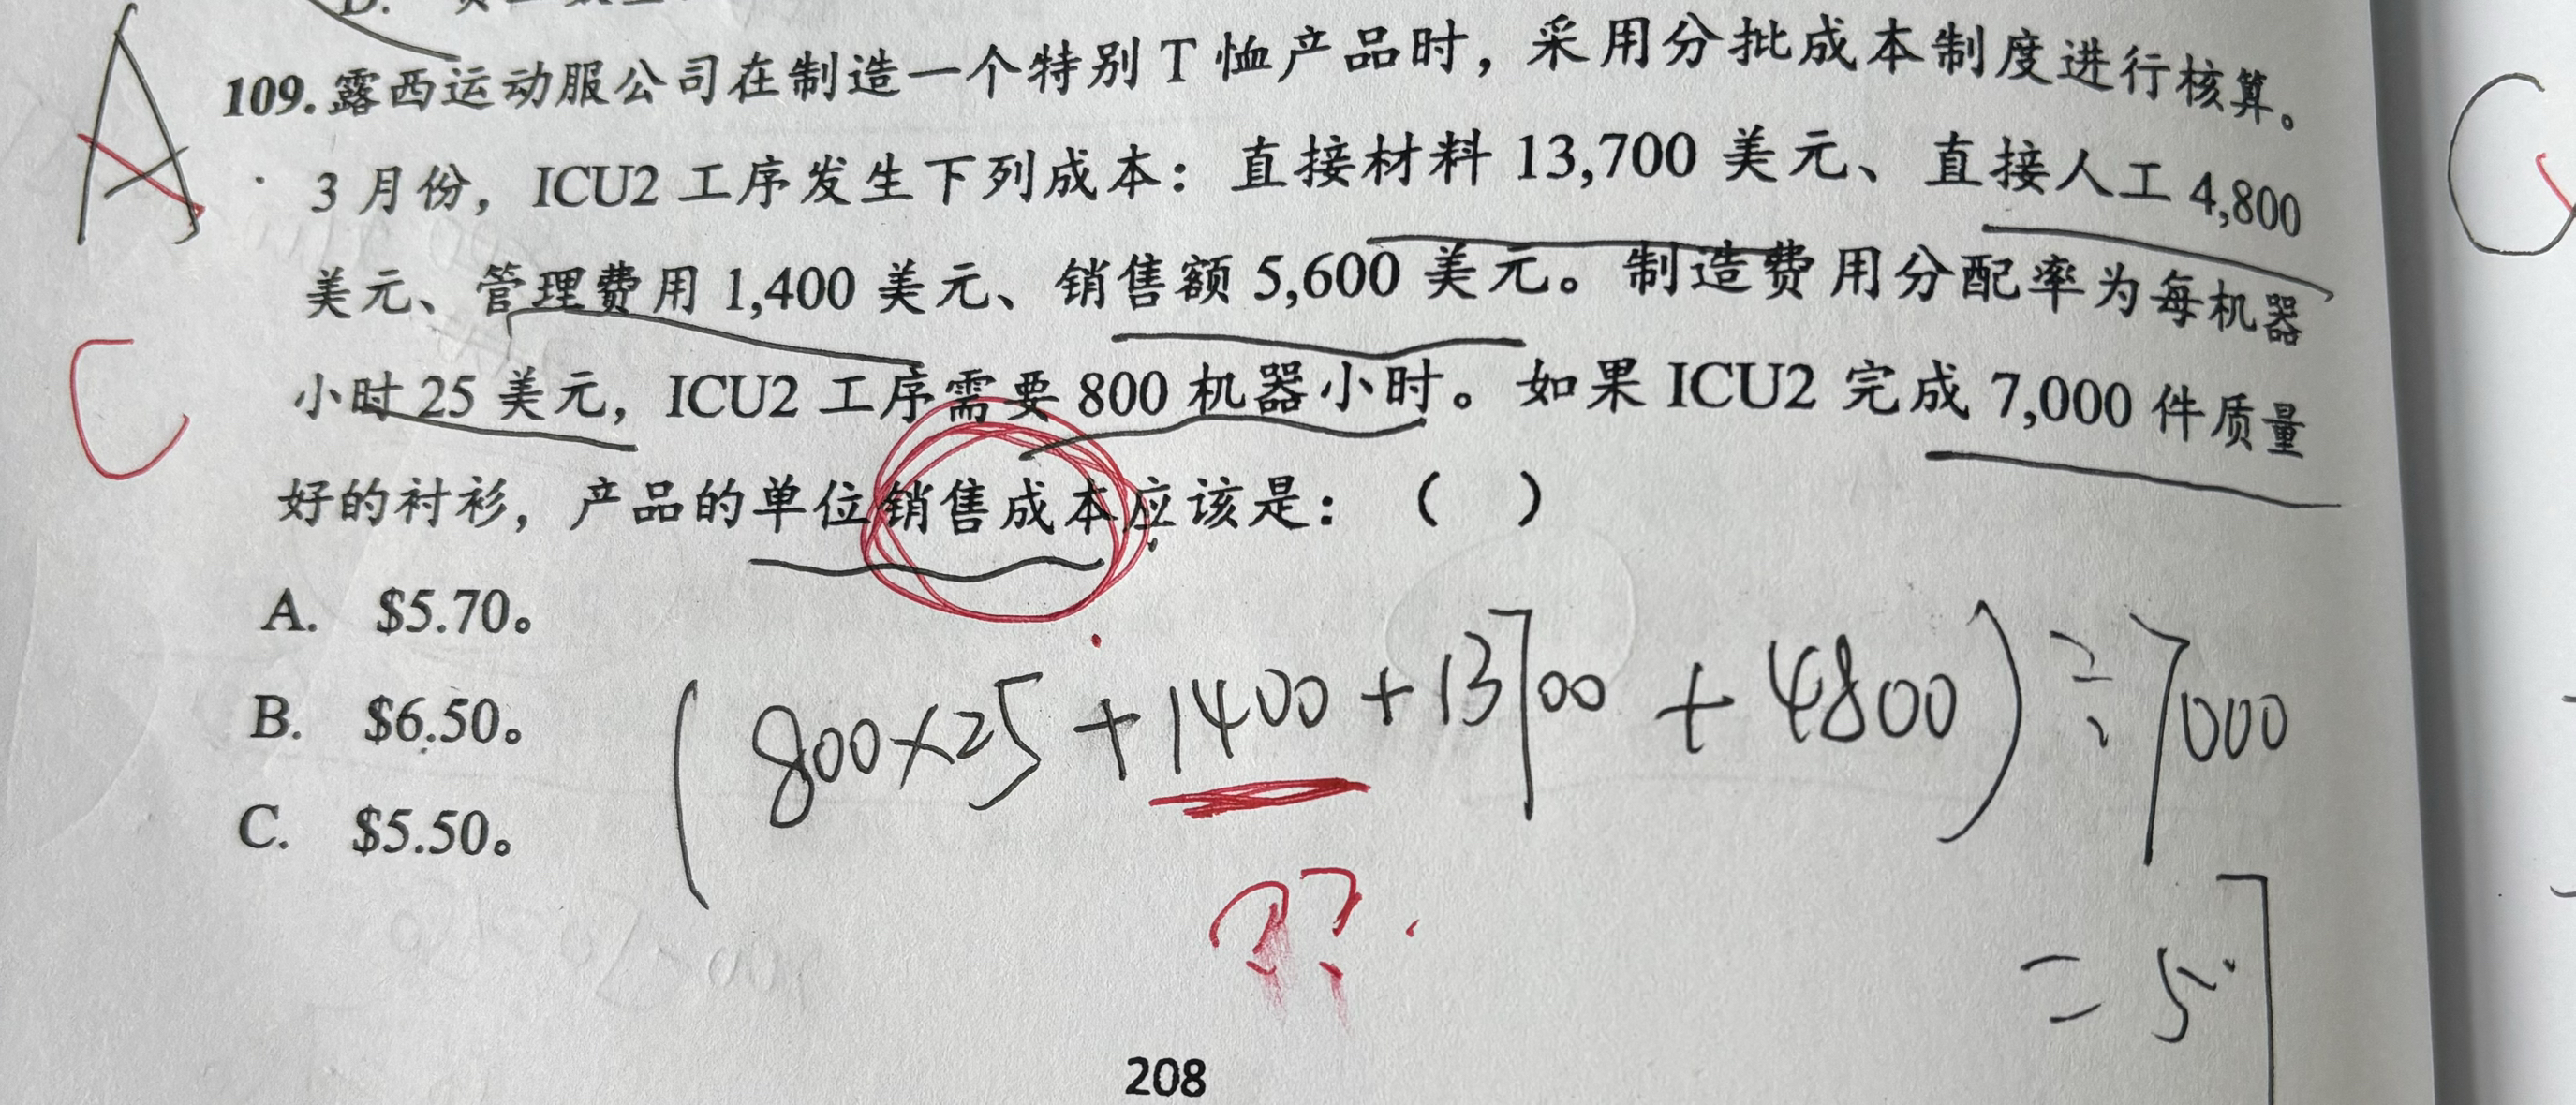 D.
A
109.露西运动服公司在制造一个特别T恤产品时，采用分批成本制度进行核算。
3月份，ICU2工序发生下列成本：直接材料13,700美元、直接人工4,800
美元、管理费用1,400美元、销售额5,600美元。制造费用分配率为每机器
C
小时25美元，ICU2工序需要800机器小时。如果ICU2完成7,000件质量
好的衬衫，产品的单位销售成本应该是：（ ）
A. $5.70。
B. $6.50。
C. $5.50。
(800×25+1400+13700+4800)÷7000
=5.7
??
208